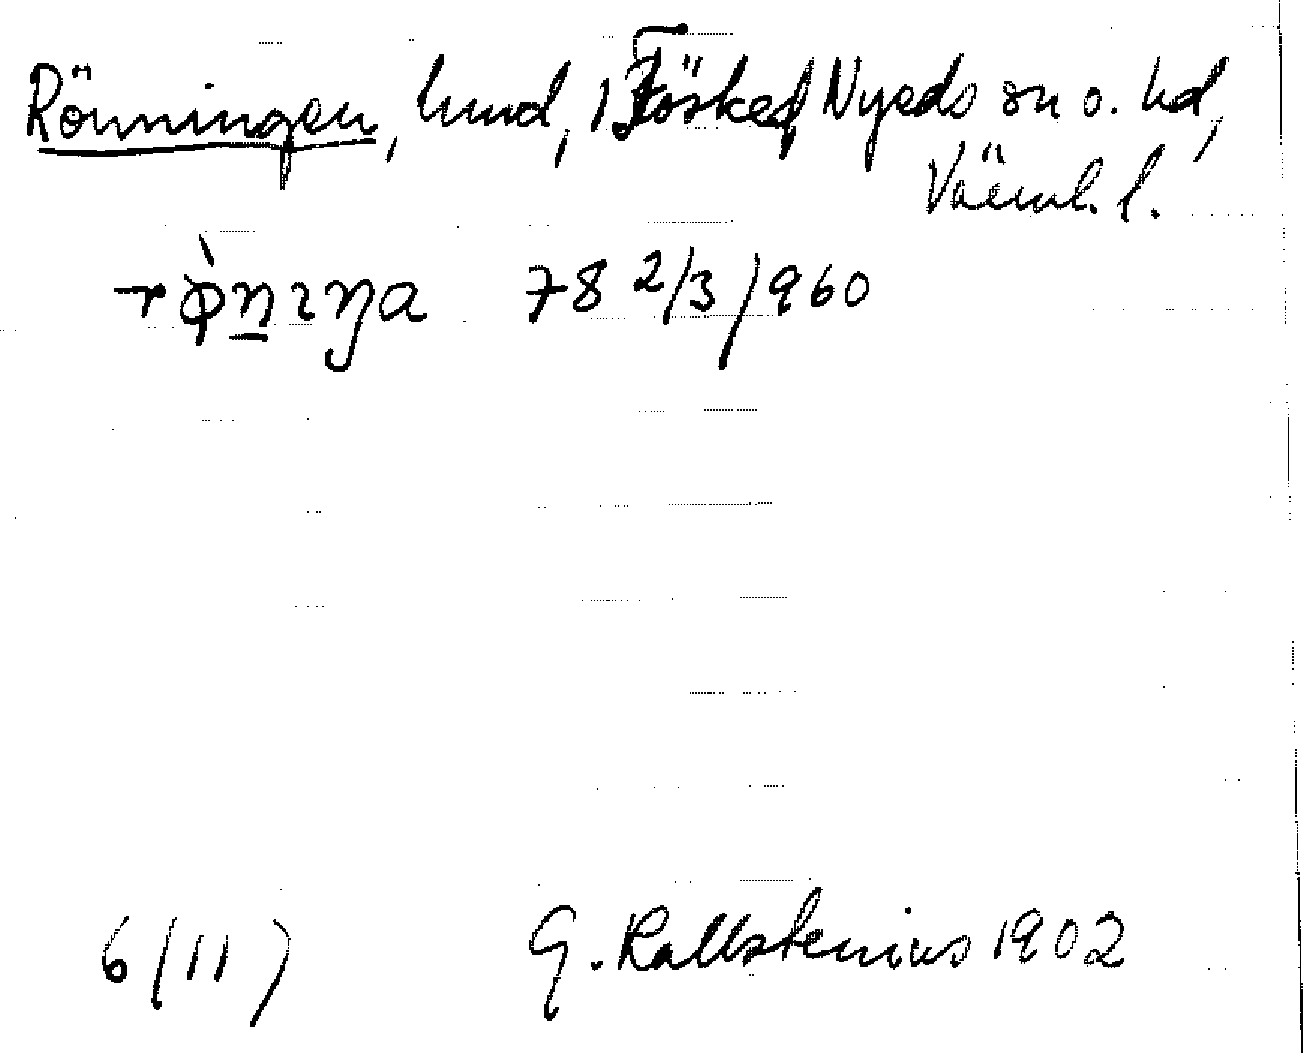 Rönningen, hmd, 1 Föskefors Nyeds sn o. hd,
Värml. l.
rø̀nıŋa 78 2/3 1960
6/11)
G. Kallstenius 1902